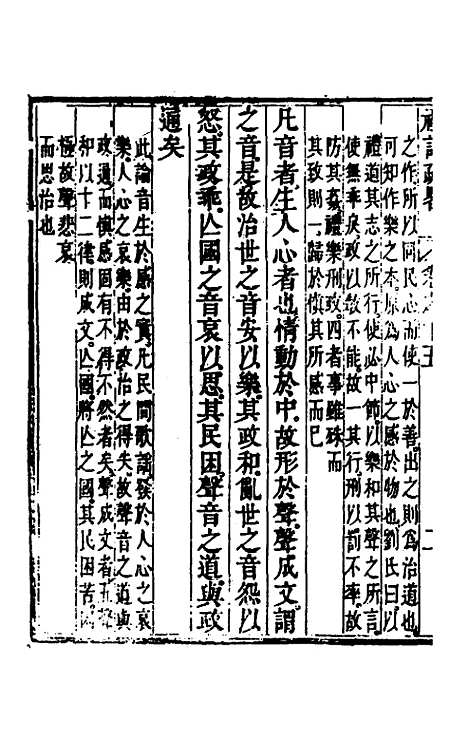 之作所以同民心而使一於善出之則為治道也
可知作樂之本原為人心之感於物也劉氏曰以
禮道其志之所行使必中節以樂和其聲之所言
使無乖戾政以一其行刑以罰不率故
防其姦禮樂刑政四者事雖殊而
其致則一歸於慎其所感而已
凡音者生人心者也情動於中故形於聲聲成文謂
之音是故治世之音安以樂其政和亂世之音怨以
怒其政乖亾國之音哀以思其民困聲音之道與政
通矣
此論音生於感之實凡民間歌謠發於人心之哀
樂人心之哀樂由於政治之得失故聲音之道與
政通而慎感固有不得不然者矣聲成文者五聲
和以十二律則成文亾國將亾之國其民困苦
極故聲悲哀
而思治也